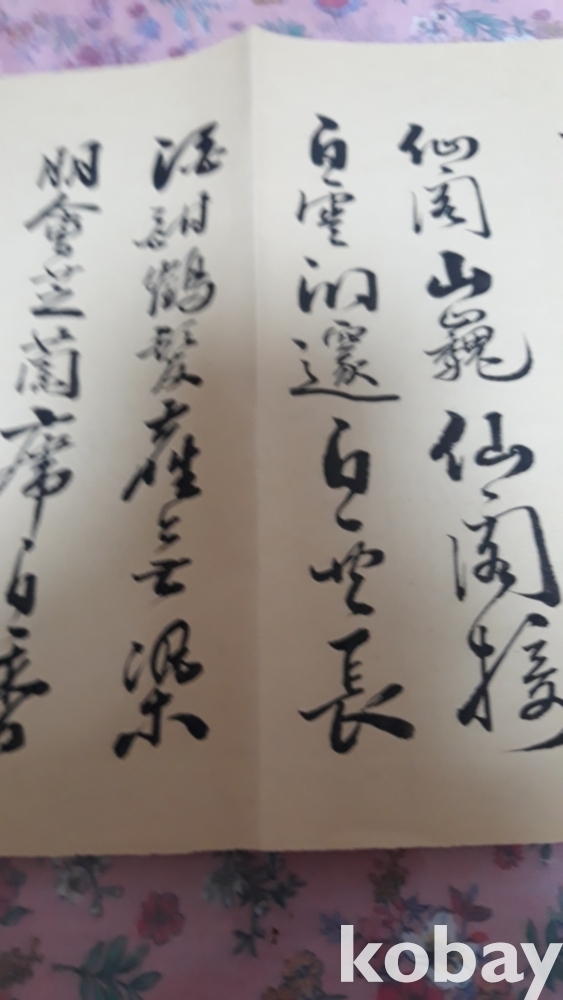 仙閣山巍仙閣接
白雲洞邃白雲長
酒酣鶴髮
朋會芝蘭席自香
kobay